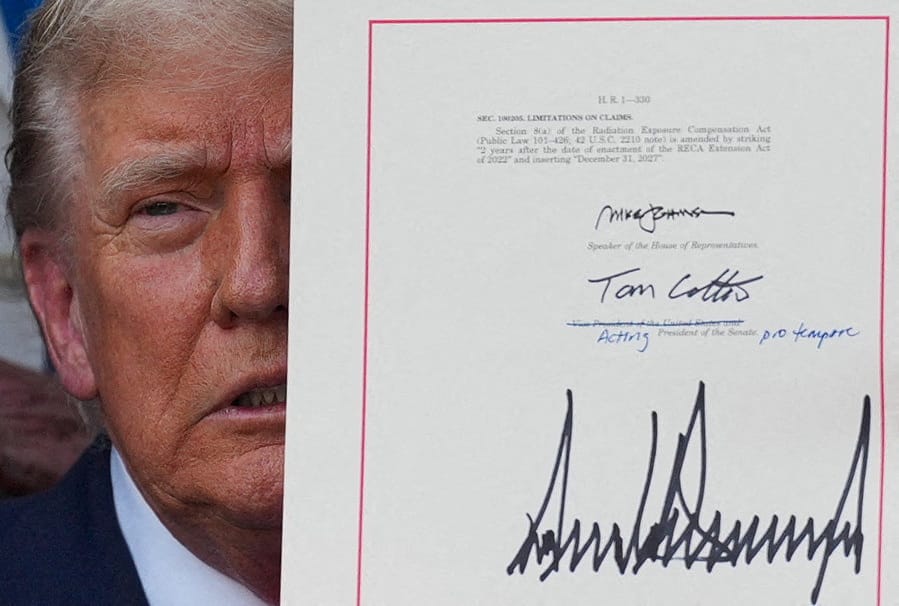 H. R. 1—330
SEC. 100205. LIMITATIONS ON CLAIMS.
Section 8(a) of the Radiation Exposure Compensation Act
(Public Law 101–426; 42 U.S.C. 2210 note) is amended by striking
"2 years after the date of enactment of the RECA Extension Act
of 2022" and inserting "December 31, 2027".
Mike Johnson
Speaker of the House of Representatives.
Tom Cotton
Vice President of the United States and
Acting President of the Senate. pro tempore